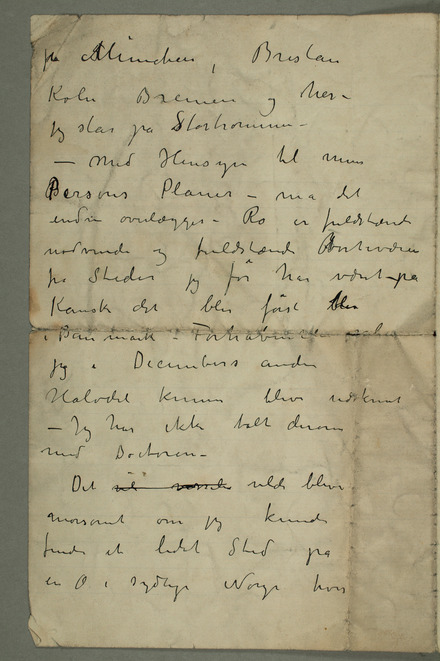 på München, Breslau
Køln Bremen og her –
jeg slas på Storhommen –
– med Hensyn til mine
Persons Planer – må det
endnu overlægges – Ro er fuldstændi
nødvendi og fuldstændi Bortværen
fra Steder jeg før har været på
Kanske det blir først blir
i Danmark –
jeg i Decembers anden
Halvdel kunne blive udskrevet
– Jeg har ikke talt derom
med Doctoren –
Det vilde blive
morsomt om jeg kunde
finde et lidet Sted på
en Ø i sydlige Norge hvor